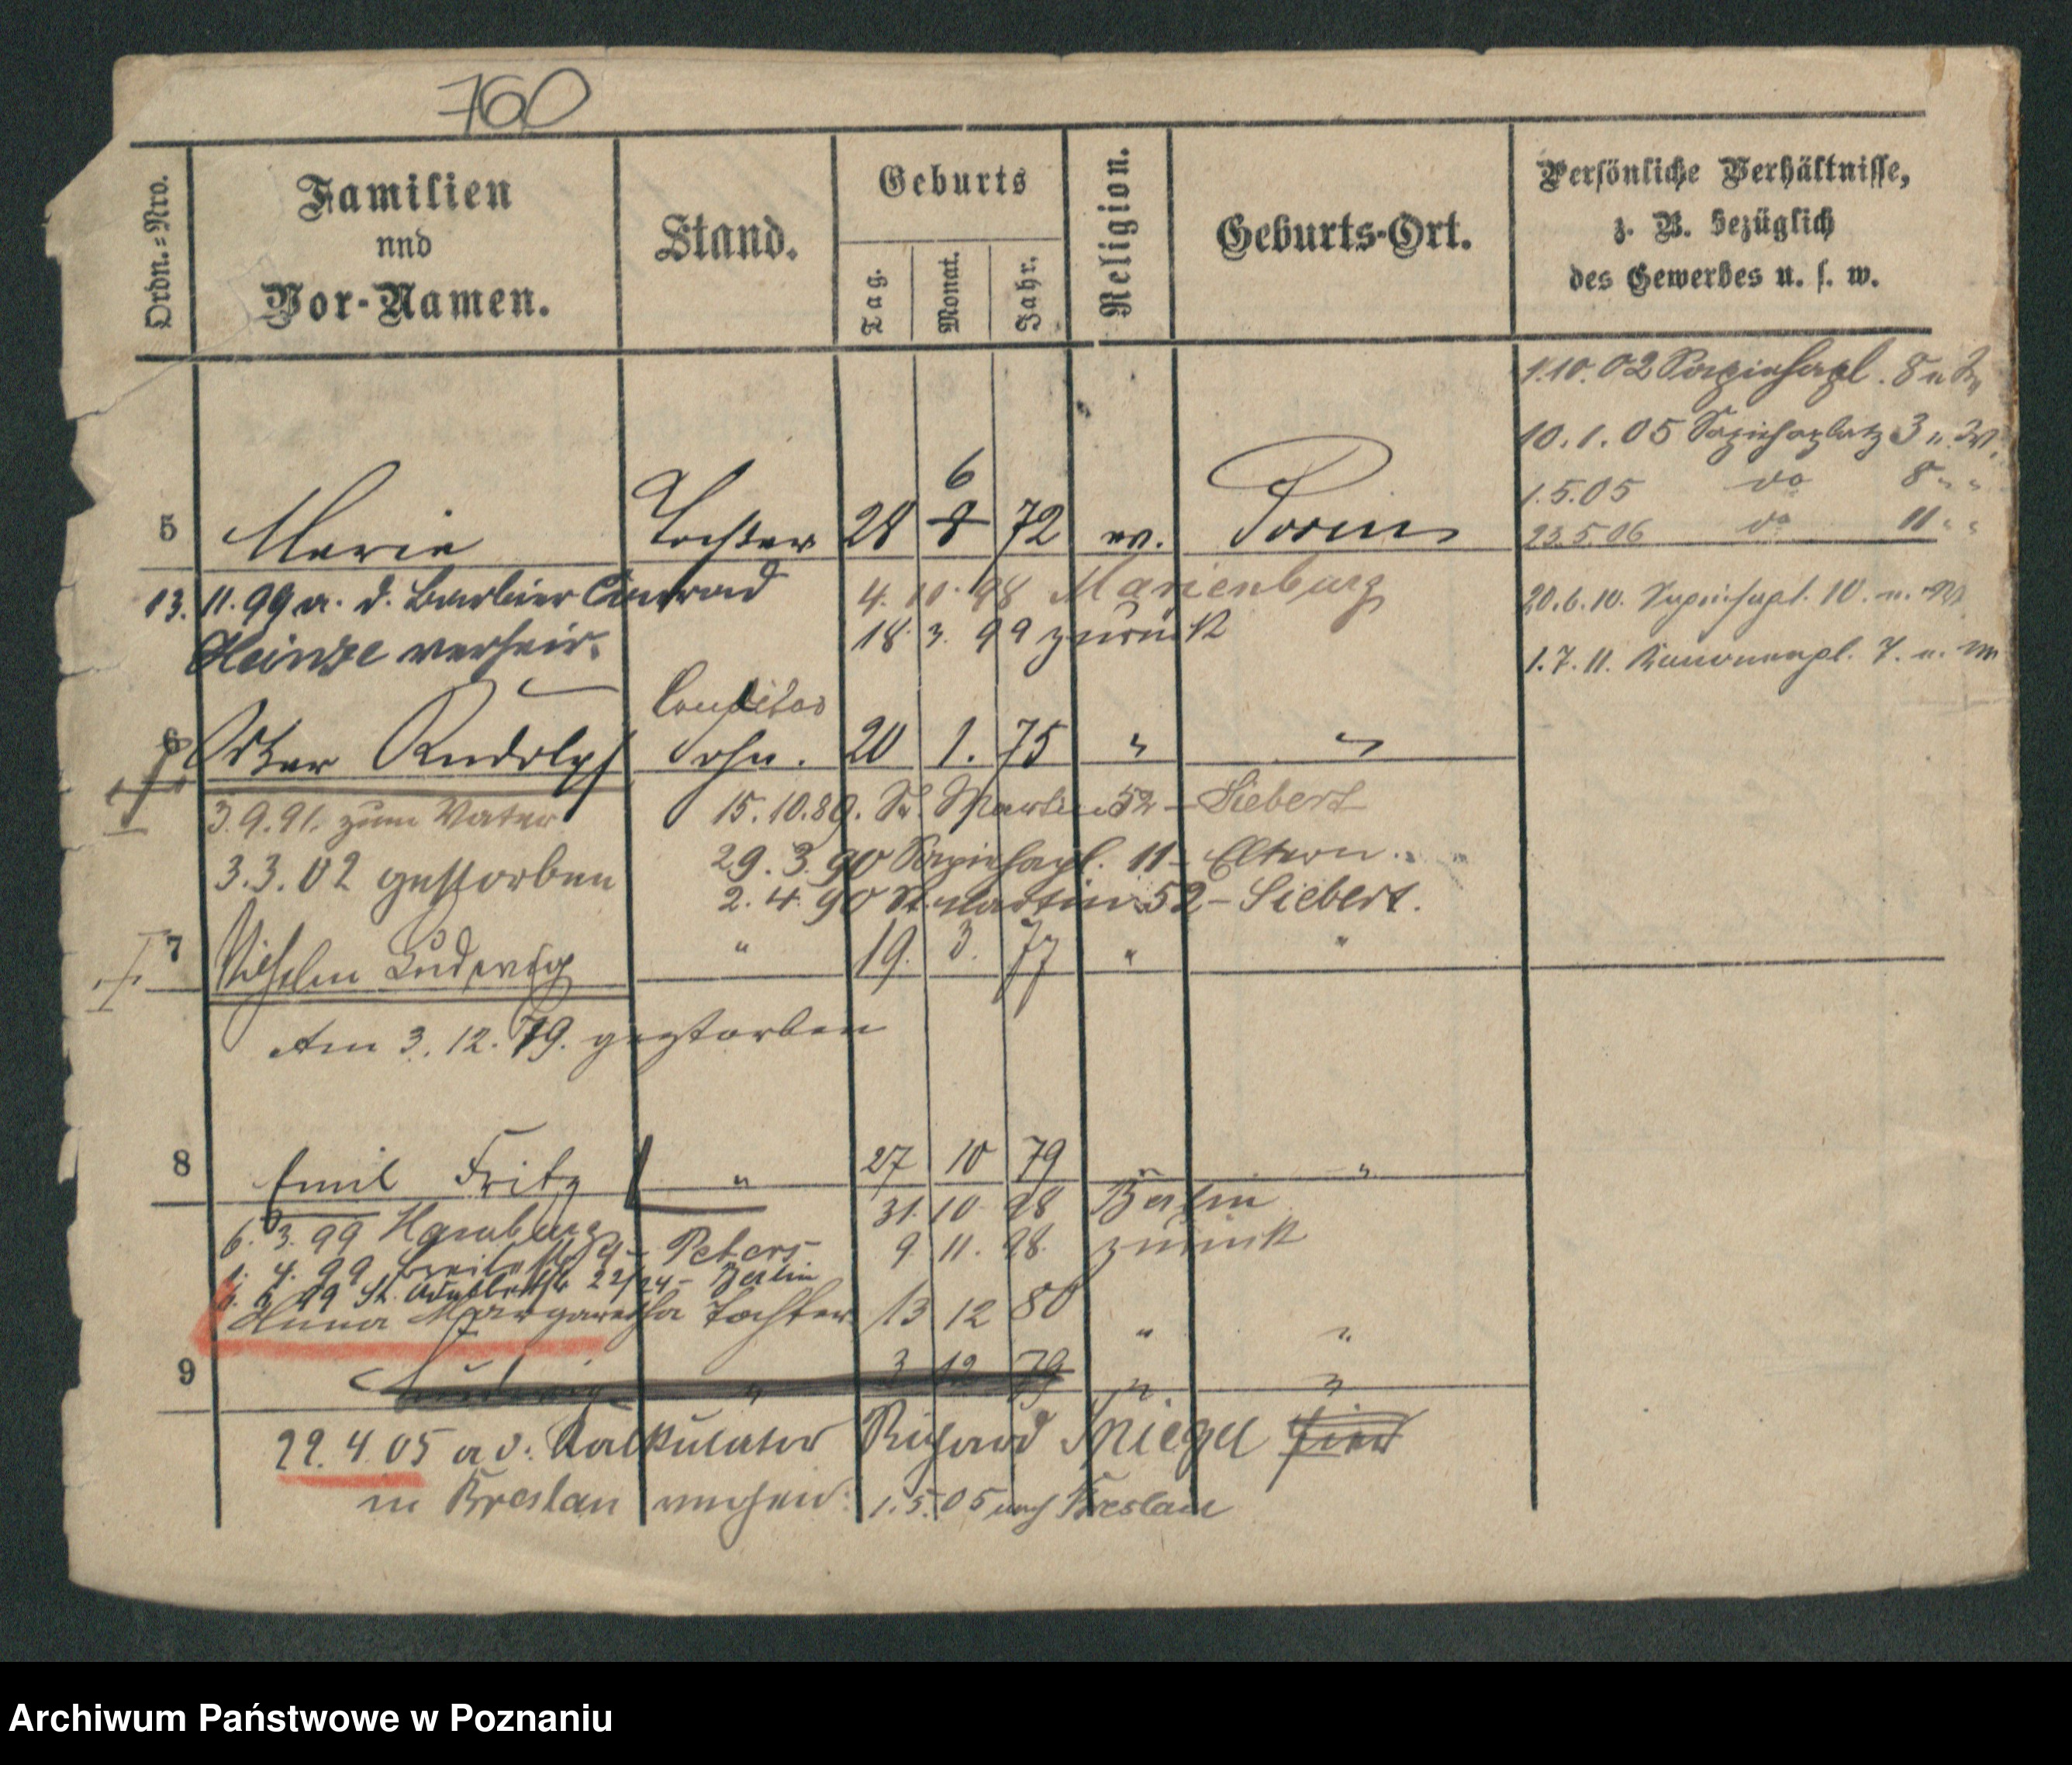 760
Ordn.=Nro.
Familien
und
Vor-Namen.
Stand.
Geburts
Tag.
Monat.
Jahr.
Religion.
Geburts-Ort.
Persönliche Verhältnisse,
z. B. bezüglich
des Gewerbes u. s. w.
1.10.02 Sapiehapl. 8
10.1.05 Sapiehaplatz 3
1.5.05 do 8 " "
23.5.06 do 11 " "
20.6.10. Sapiehapl. 10.
1.7.11. Kanonenpl. 7.
5 Marie Tochter 28 8 6 72 ev. Posen
13.11.99 a. d. Barbier Conrad
Heinze verheir.
4. 10. 98 Marienburg
18. 3. 99 zurück
Conditor
6 Oskar Rudolph Sohn. 20 1. 75 " "
3.9.91. zum Vater
15.10.89. St. Martin 52 – Siebert
3.3.02 gestorben
29.3.90 Sapiehapl. 11 – Eltern.
2.4.90 St. Martin 52 – Siebert.
7 Wilhelm Ludwig " 19. 3. 77 " "
Am 3.12.79. gestorben
8 Emil Fritz " 27 10 79 " "
31. 10. 98 Berlin
6. 3. 99 Hamburg
9. 11. 98. zurück
4. 99 Breitestr. 9 – Peters
99 St. Adalbertstr 22/24 – Berlin
Anna Margaretha Tochter 13 12 80 " "
9 Ludwig " 3 12 79 " "
22.4.05 a d. Kalkulator Richard Spiegel hier
in Breslau 1.5.05 nach Breslau
Archiwum Państwowe w Poznaniu